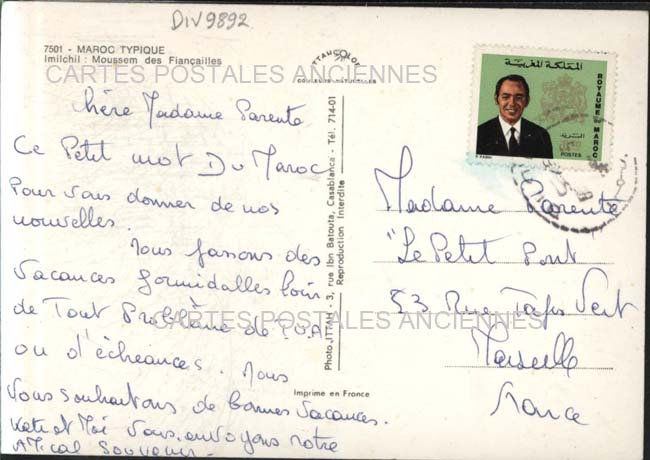 DIV9892
7501 - MAROC TYPIQUE
Imilchil : Moussem des Fiançailles
CARTES POSTALES ANCIENNES
chère Madame Parente
Ce Petit mot Du Maroc
Pour vous donner de nos
nouvelles.
Nous passons des
Vacances formidalles loin
de Tout Problème de T.V.A
ou d'échéances. Nous
vous souhaitons de bonnes vacances.
Kati et Moi vous envoyons notre
Amical Souvenir
CARTES POSTALES ANCIENNES
Photo JTTAH - 3, rue Ibn Batouta, Casablanca - Tél. 714-01
Reproduction Interdite
Imprimé en France
المملكة المغربية
البريد
ROYAUME DU MAROC
POSTES
Madame Parente
"Le Petit Pont
53 Rue Tapis Vert
Marseille
France